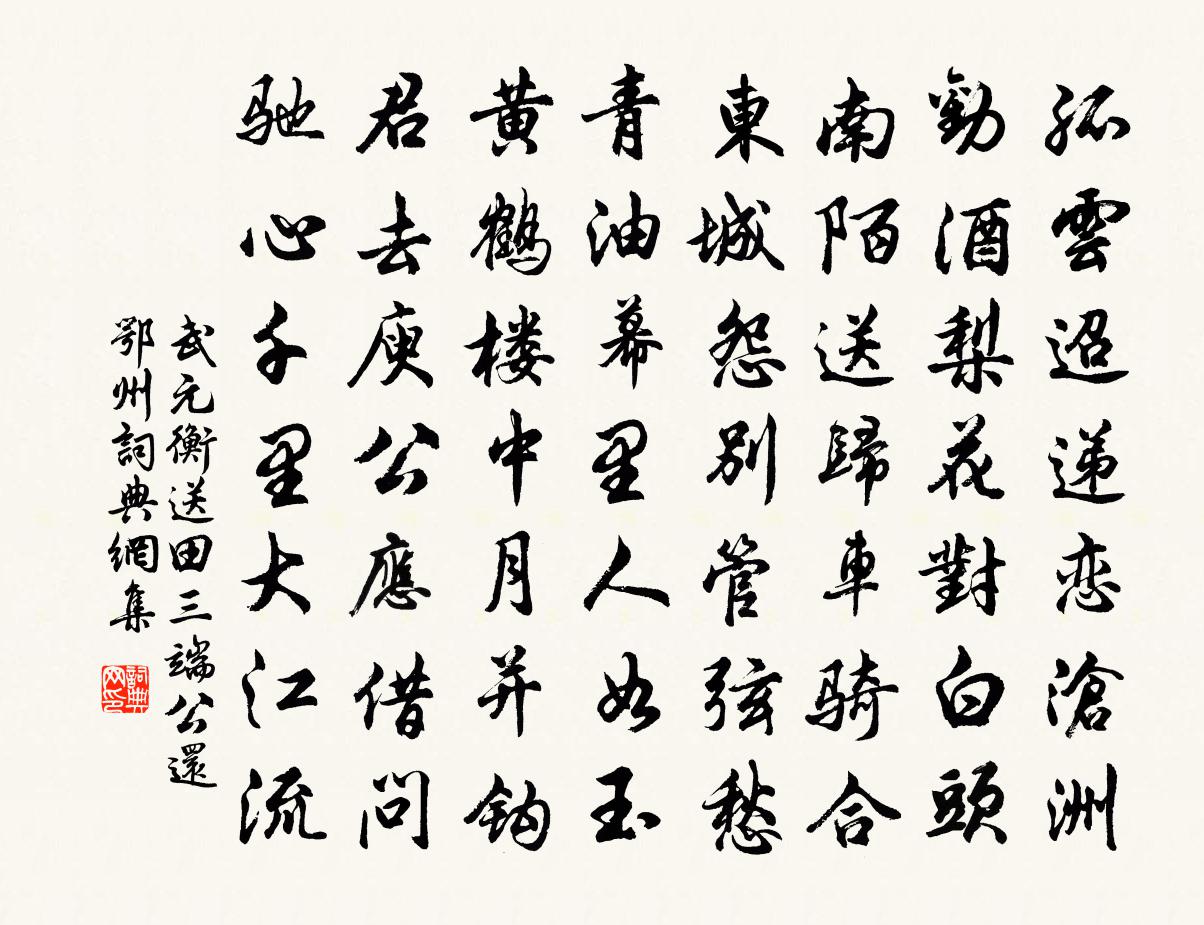 孤雲迢递恋滄洲
勸酒梨花對白頭
南陌送歸車骑合
東城怨别管弦愁
青油幕里人如玉
黄鹤楼中月并钩
君去庾公應借問
驰心千里大江流
武元衡送田三端公還
鄂州詞典網集
詞典网印